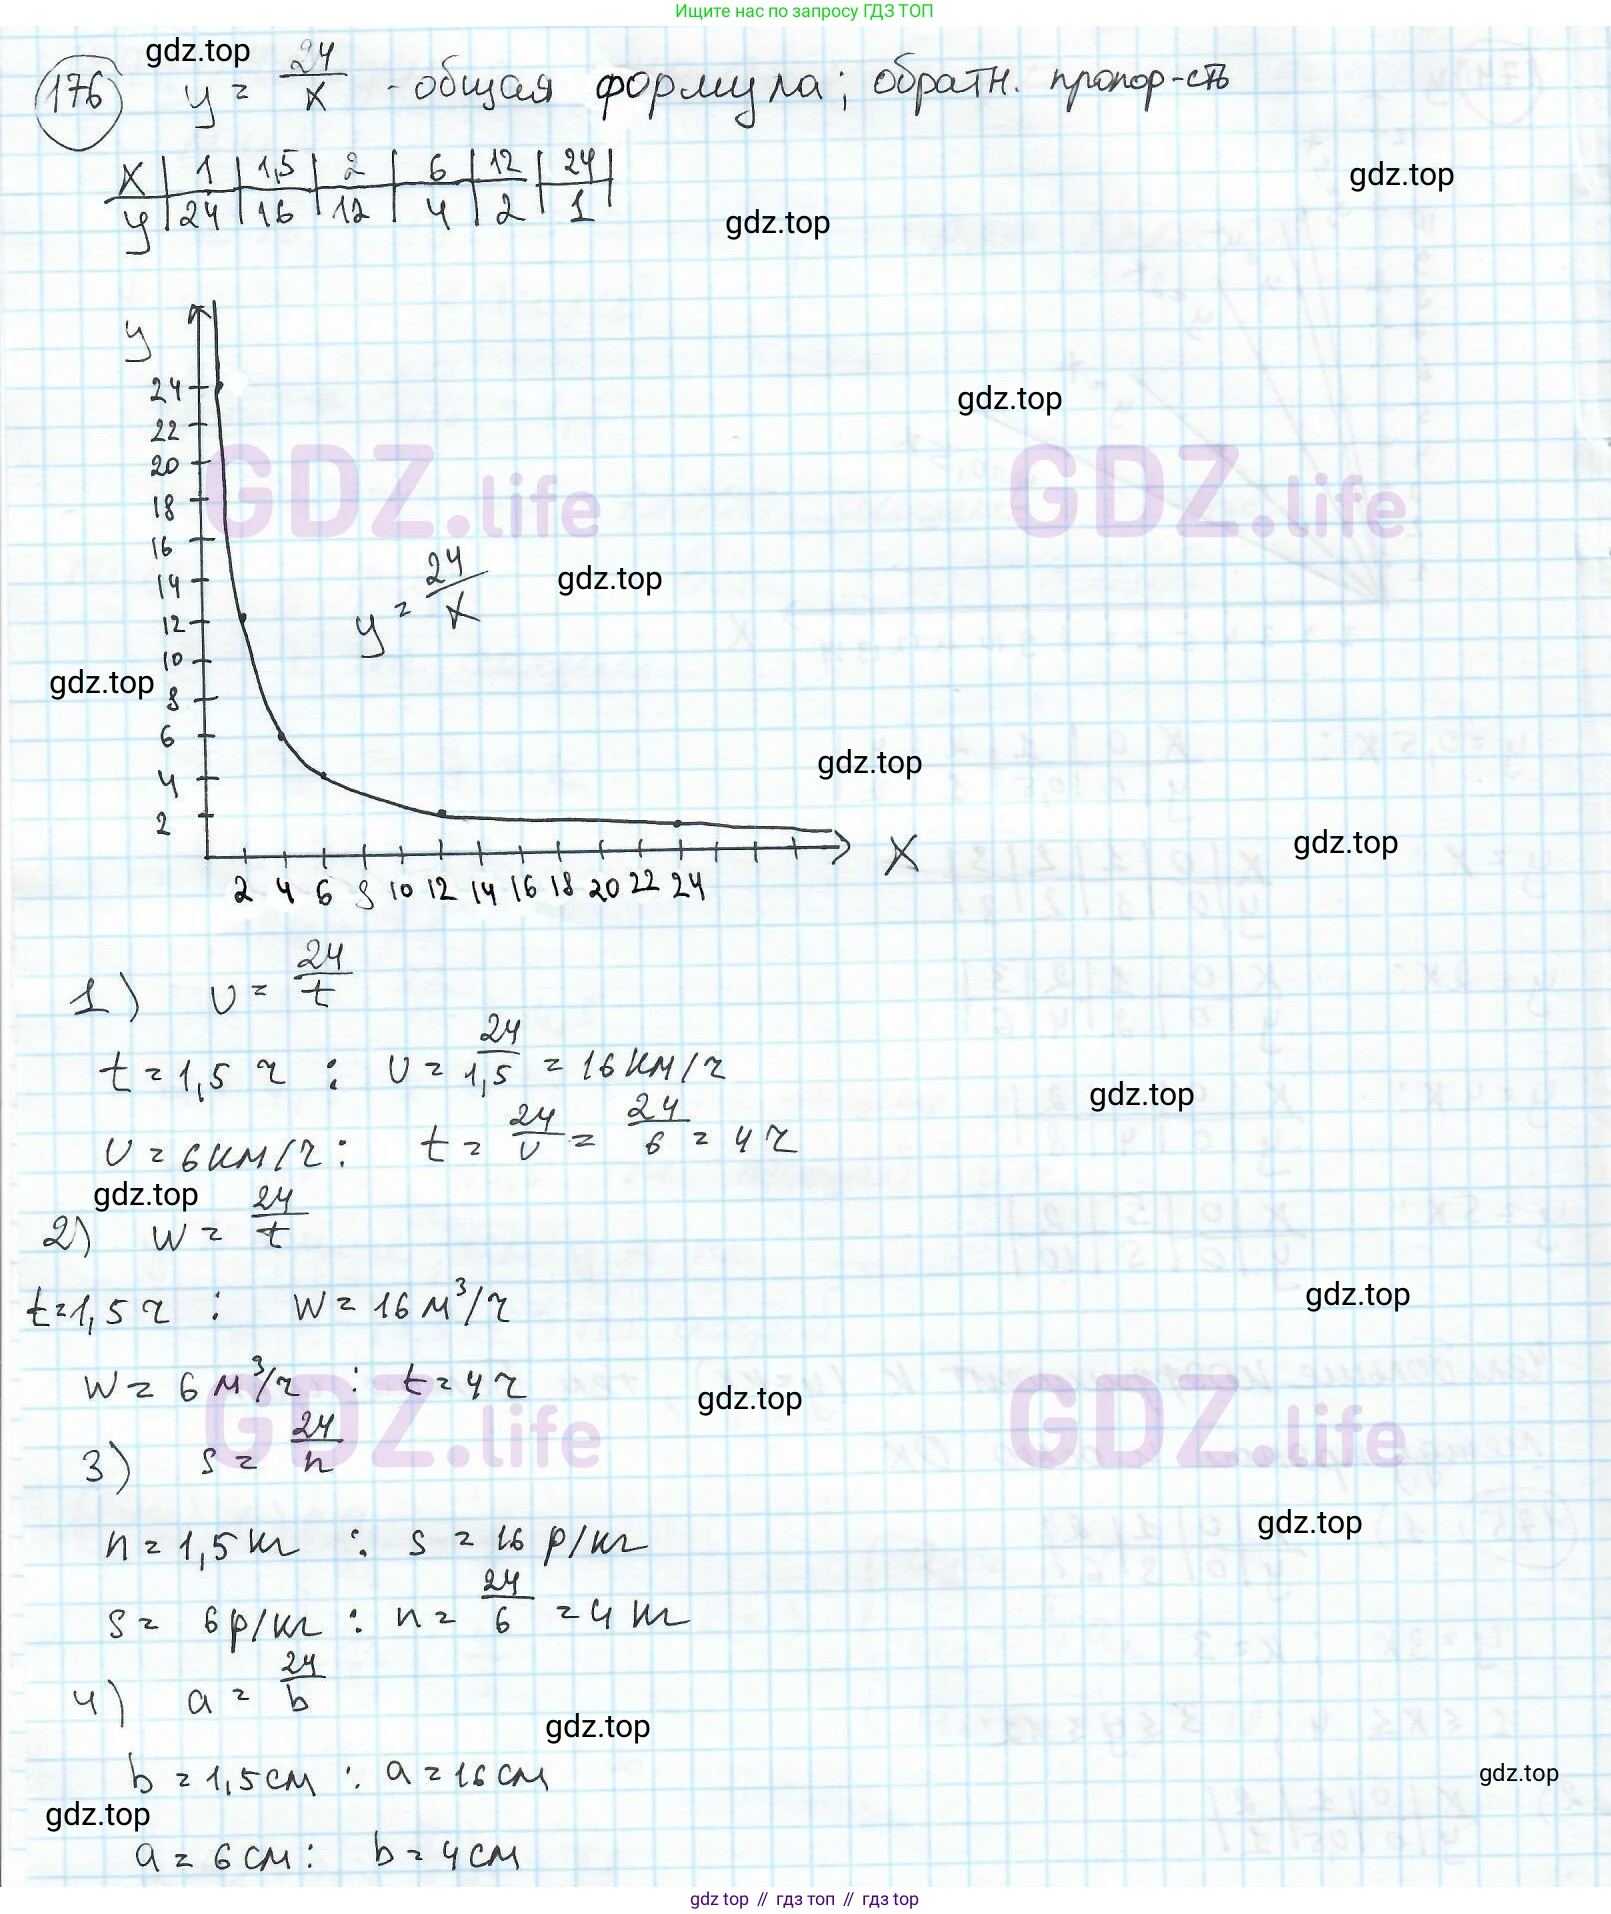 Ищите нас по запросу ГДЗ ТОП
gdz.top
176 y = 24/x - общая формула; обратн. пропор-сть
gdz.top
x | 1 | 1,5 | 2 | 6 | 12 | 24 |
y | 24 | 16 | 12 | 4 | 2 | 1 |
gdz.top
y
24
22
20
18
16
14
12
10
8
6
4
2
gdz.top
GDZ.life GDZ.life
y = 24/x
gdz.top
gdz.top
gdz.top
gdz.top
x
2 4 6 8 10 12 14 16 18 20 22 24
1) v = 24/t
t = 1,5 ч : v = 24/1,5 = 16 км/ч
gdz.top
v = 6 км/ч : t = 24/v = 24/6 = 4 ч
gdz.top
2) w = 24/t
t = 1,5 ч : w = 16 м³/ч
gdz.top
w = 6 м³/ч : t = 4 ч
gdz.top
GDZ.life GDZ.life
3) s = 24/n
gdz.top
n = 1,5 кг : s = 16 р/кг
s = 6 р/кг : n = 24/6 = 4 кг
4) a = 24/b
gdz.top
b = 1,5 см : a = 16 см
gdz.top
gdz.top
a = 6 см : b = 4 см
gdz top // гдз топ // gdz top